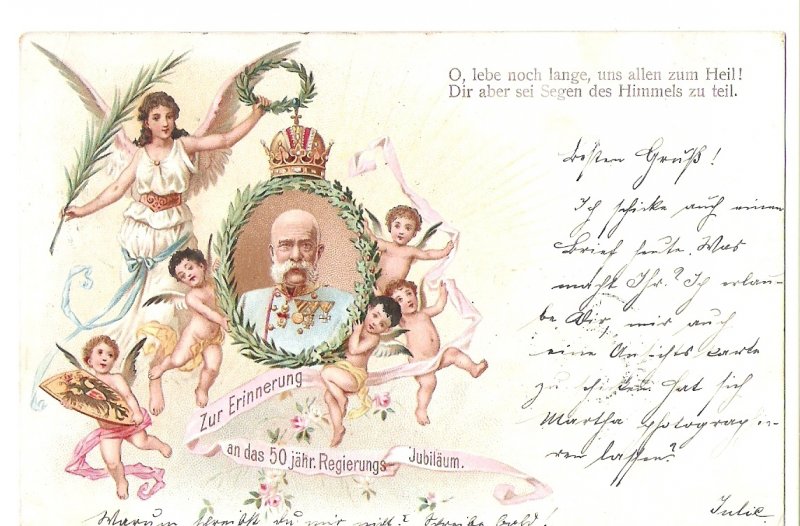 O, lebe noch lange, uns allen zum Heil!
Dir aber sei Segen des Himmels zu teil.
Besten Gruß!
Ich schicke auch einen
Brief heute. Was
macht Ihr? Ich erlau-
be Dir, mir auch
eine Ansichts carte
zu schicken. Hat sich
Martha photograp hi-
ren lassen?
Julie
Zur Erinnerung
an das 50 jähr. Regierungs Jubiläum.
Warum schreibst du mir nicht? Schreibe bald!